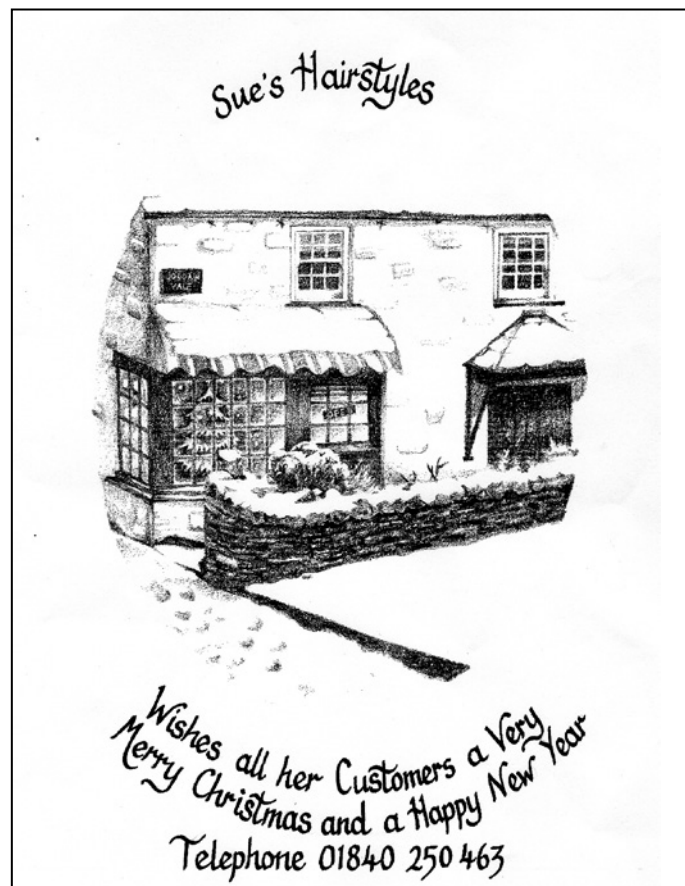 Sue's Hairstyles
VALE
Wishes all her Customers a Very
Merry Christmas and a Happy New Year
Telephone 01840 250 463